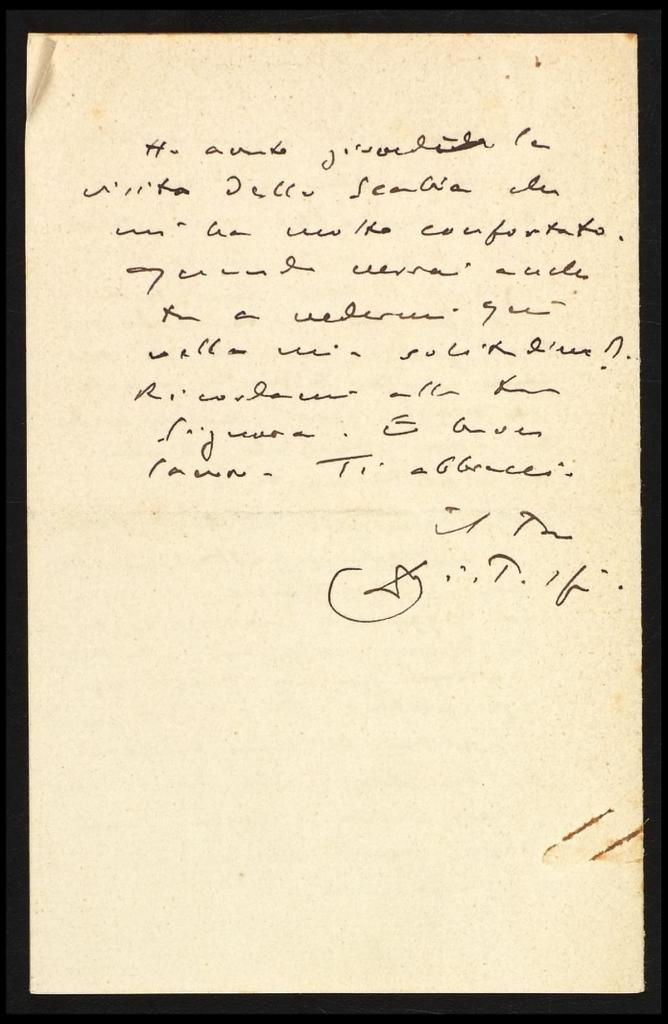 Ho avuto giovedì la
visita dello Scarbia che
mi ha molto confortato.
Quando verrai anche
tu a vedermi qui
nella mia solitudine?
Ricordami alla tua
Signora. E buon
lavoro. Ti abbraccio.
il Tuo